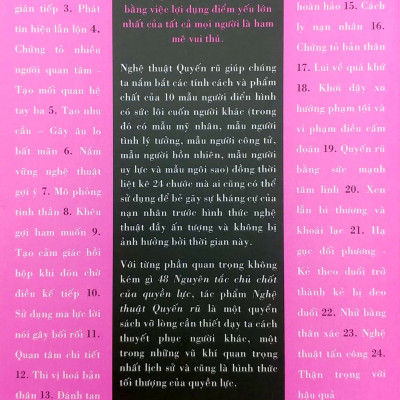 gián tiếp 3. Phát
tín hiệu lẫn lộn 4.
Chứng tỏ nhiều
người quan tâm –
Tạo mối quan hệ
tay ba 5. Tạo nhu
cầu – Gây âu lo
bất mãn 6. Nắm
vững nghệ thuật
gợi ý 7. Mô phỏng
tinh thần 8. Khêu
gợi ham muốn 9.
Tạo cảm giác hồi
hộp khi đón chờ
điều kế tiếp 10.
Sử dụng ma lực lời
nói gây bối rối 11.
Quan tâm chi tiết
12. Thi vị hoá bản
thân 13. Đánh tan
bằng việc lợi dụng điểm yếu lớn
nhất của tất cả mọi người là ham
mê vui thú.
Nghệ thuật Quyến rũ giúp chúng
ta nắm bắt các tính cách và phẩm
chất của 10 mẫu người điển hình
có sức lôi cuốn người khác (trong
đó có mẫu mỹ nhân, mẫu người
tình lý tưởng, mẫu người công tử,
mẫu người hồn nhiên, mẫu người
uy lực và mẫu ngôi sao) đồng thời
liệt kê 24 chước mà ai cũng có thể
sử dụng để bẻ gãy sự kháng cự của
nạn nhân trước hình thức nghệ
thuật đầy ấn tượng và không bị
ảnh hưởng bởi thời gian này.
Với từng phần quan trọng không
kém gì 48 Nguyên tắc chủ chốt
của quyền lực, tác phẩm Nghệ
thuật Quyến rũ là một quyển
sách vỡ lòng cần thiết dạy ta cách
thuyết phục người khác, một
trong những vũ khí quan trọng
nhất lịch sử và cũng là hình thức
tối thượng của quyền lực.
hoàn hảo 15. Cách
ly nạn nhân 16.
Chứng tỏ bản thân
17. Lui về quá khứ
18. Khơi dậy xu
hướng phạm tội và
vi phạm điều cấm
đoán 19. Quyến rũ
bằng sức mạnh
tâm linh 20. Xen
lẫn bi thương và
khoái lạc 21. Hạ
gục đối phương –
Kẻ theo đuổi trở
thành kẻ bị đeo
đuổi 22. Nhử bằng
thân xác 23. Nghệ
thuật tấn công 24.
Thận trọng với
hậu quả